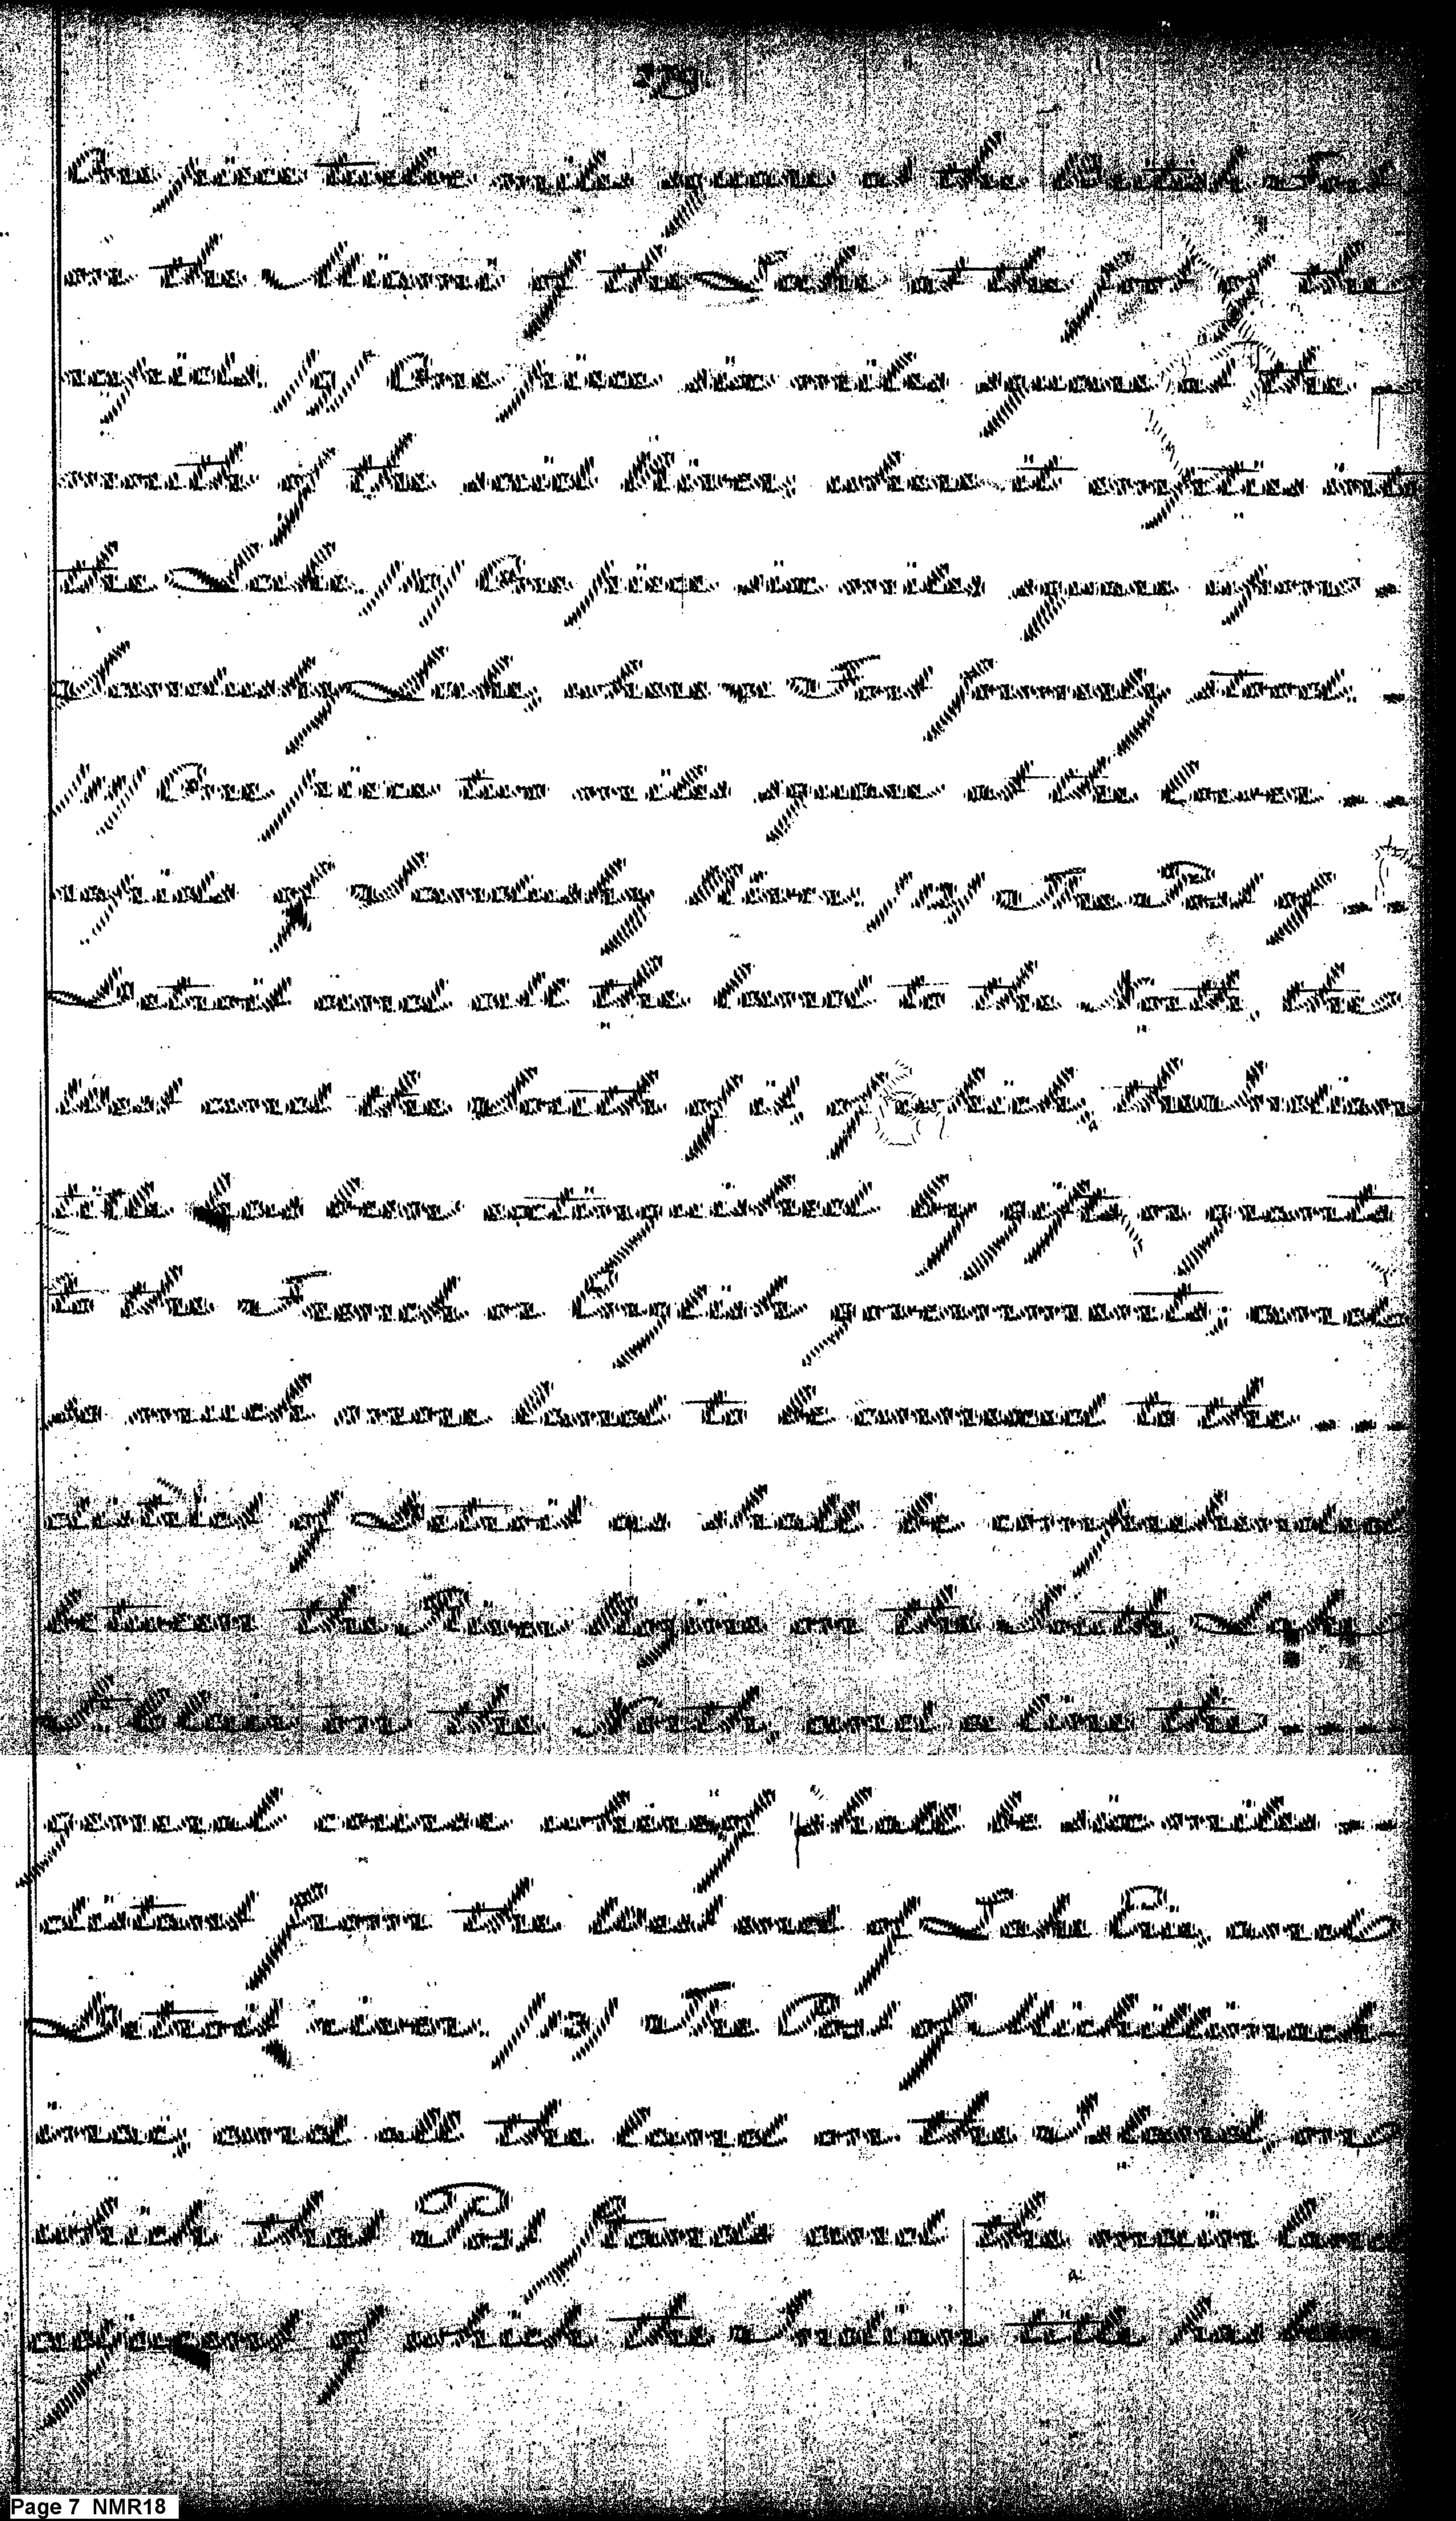 279.
One piece twelve miles square at the British Fort
on the Miami of the Lake at the foot of the
rapids. /9/ One piece six miles square at the -
mouth of the said River, where it empties into
the Lake. /10/ One piece six miles square upon -
Sandusky Lake, where a Fort formerly stood. -
/11/ One piece two miles square at the lower - -
rapids of Sandusky River. /12/ The Post of - -
Detroit and all the land to the North, the
West and the South of it, of which, the Indian
title has been extinguished by gifts or grants
to the French or English governments; and
so much more land to be annexed to the - - -
district of Detroit as shall be comprehended
between the River Rosine on the South, Lake
St. Clair on the North, and a line the - - - -
general course whereof shall be six miles - -
distant from the West end of Lake Erie, and
Detroit river. /13/ The Post of Michillimack-
inac, and all the land on the Island, on
which that Post stands and the main land
adjacent, of which the Indian title has been
Page 7 NMR18